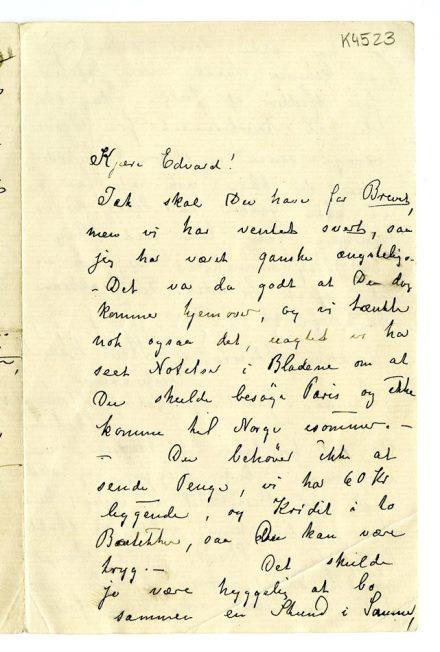 K4523
Kjære Edvard!
Tak skal Du have for Brevet,
men vi har ventet svært, saa
jeg har været ganske ængstelig. -
- Det va da godt at Du dog
kommer hjemover, og vi tænkte
nok ogsaa det, uagtet vi har
seet Notitser i Bladene om at
Du skulde besøge Paris og ikke
komme til Norge isommer. -
- Du behøver ikke at
sende Penge, vi har 60 Kr
liggende, og Kredit i to
Boutikker, saa Du kan være
tryg. - Det skulde
jo være hyggelig at bo
sammen en Stund i Sommer,